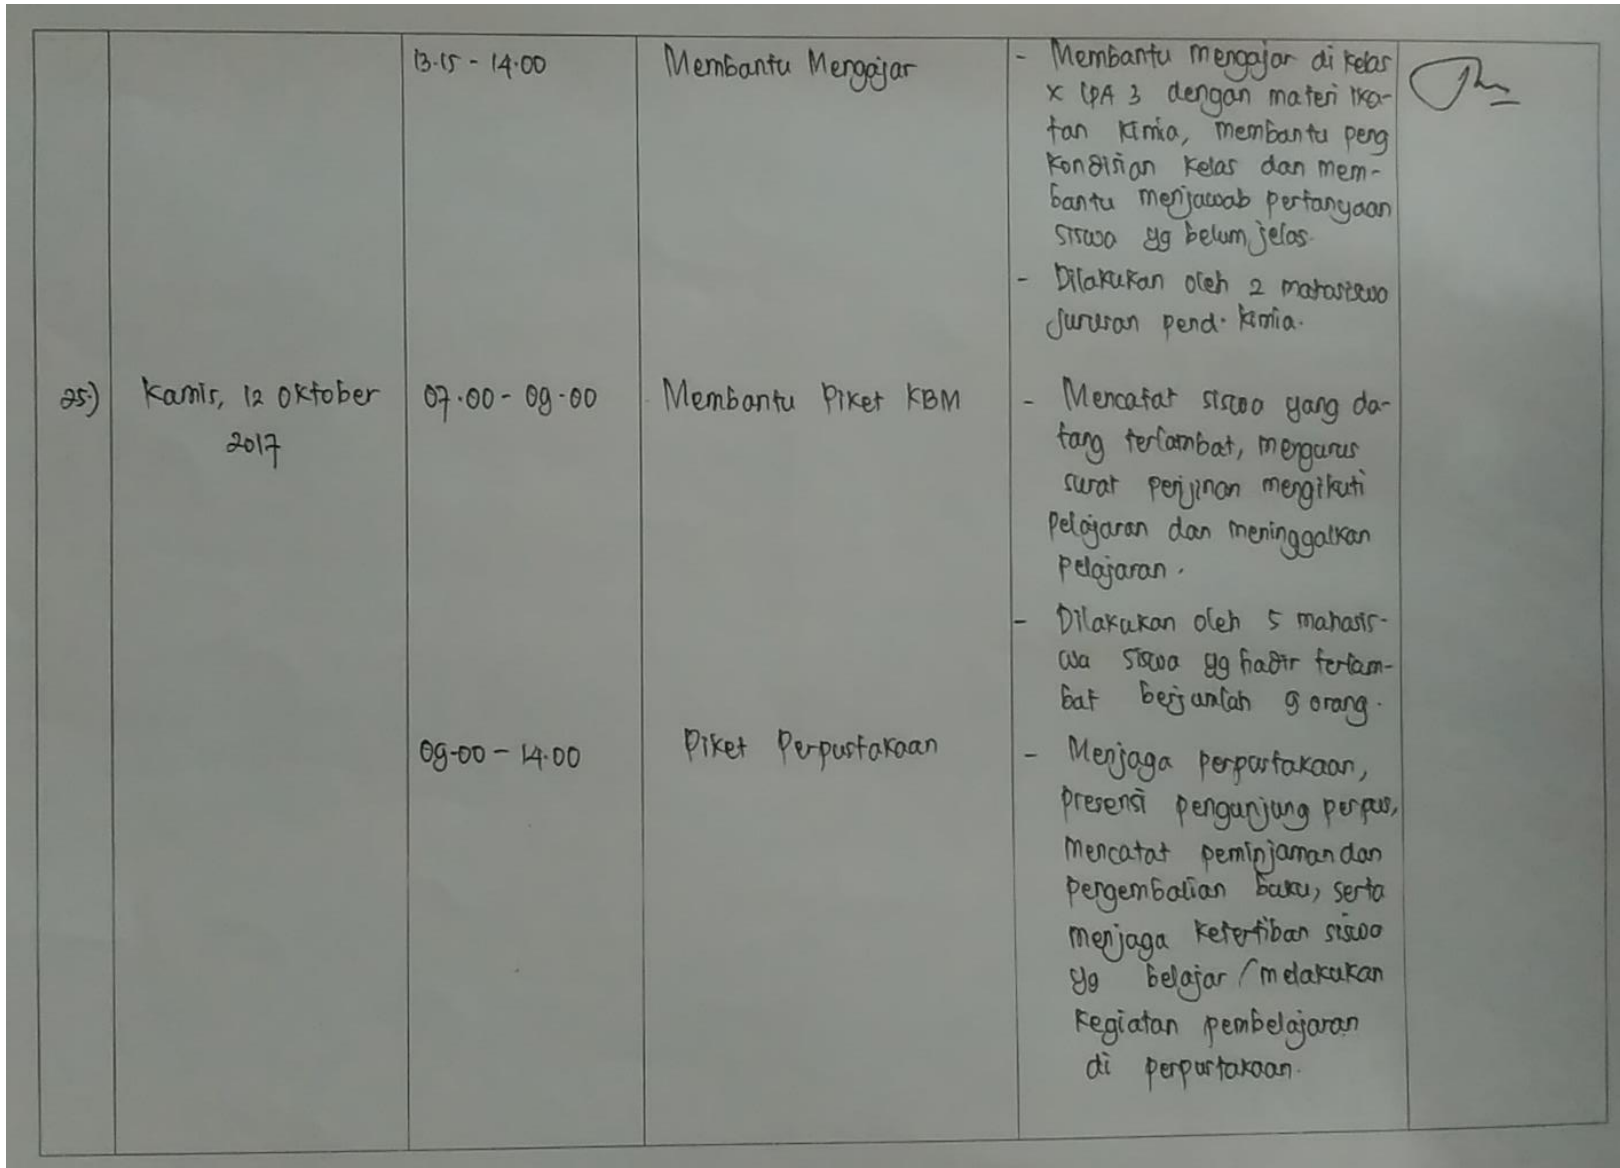 13.15 - 14.00
Membantu Mengajar
- Membantu mengajar di kelas
X IPA 3 dengan materi ika-
tan kimia, membantu peng
kondisian kelas dan mem-
bantu menjawab pertanyaan
siswa yg belum jelas.
- Dilakukan oleh 2 mahasiswa
jurusan pend. kimia.
25.)
Kamis, 12 Oktober
2017
07.00 - 09.00
Membantu Piket KBM
- Mencatat siswa yang da-
tang terlambat, mengurus
surat perijinan mengikuti
pelajaran dan meninggalkan
pelajaran.
- Dilakukan oleh 5 mahasis-
wa siswa yg hadir terlam-
bat berjumlah 9 orang.
09.00 - 14.00
Piket Perpustakaan
- Menjaga perpustakaan,
presensi pengunjung perpus,
mencatat peminjaman dan
pengembalian buku, serta
menjaga ketertiban siswa
yg belajar / melakukan
kegiatan pembelajaran
di perpustakaan.